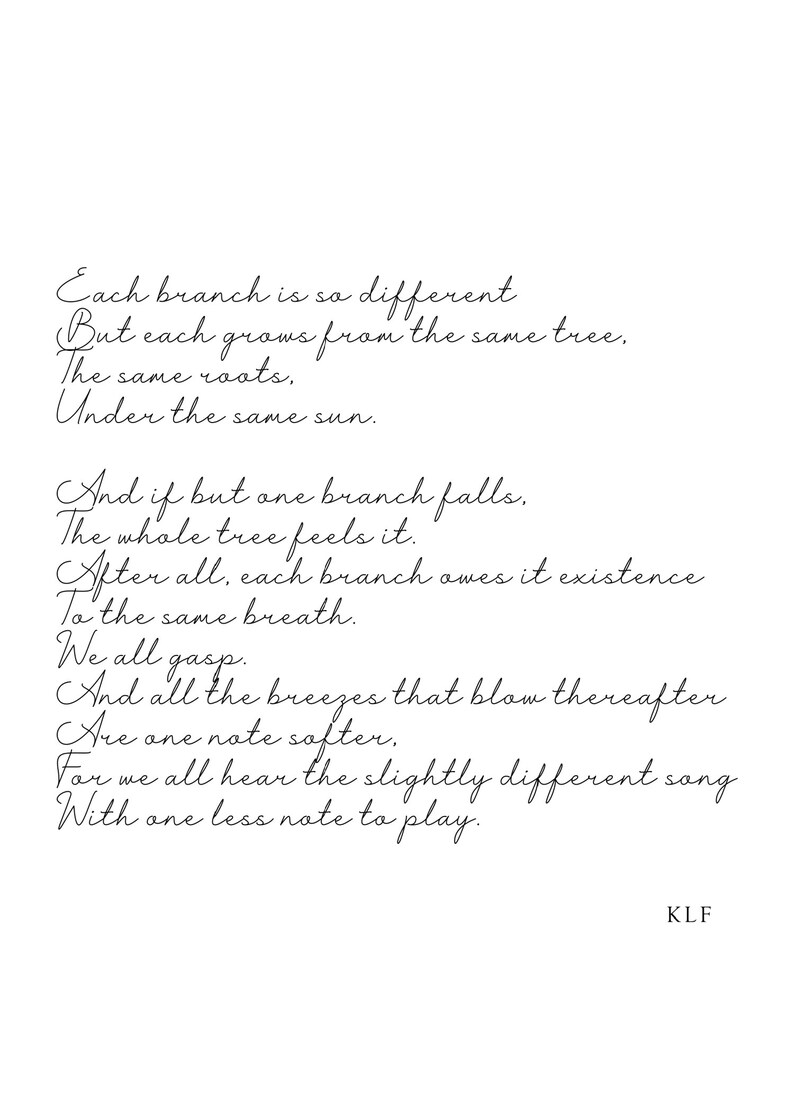 Each branch is so different
But each grows from the same tree,
The same roots,
Under the same sun.
And if but one branch falls,
The whole tree feels it.
After all, each branch owes it existence
To the same breath.
We all gasp.
And all the breezes that blow thereafter
Are one note softer,
For we all hear the slightly different song
With one less note to play.
KLF